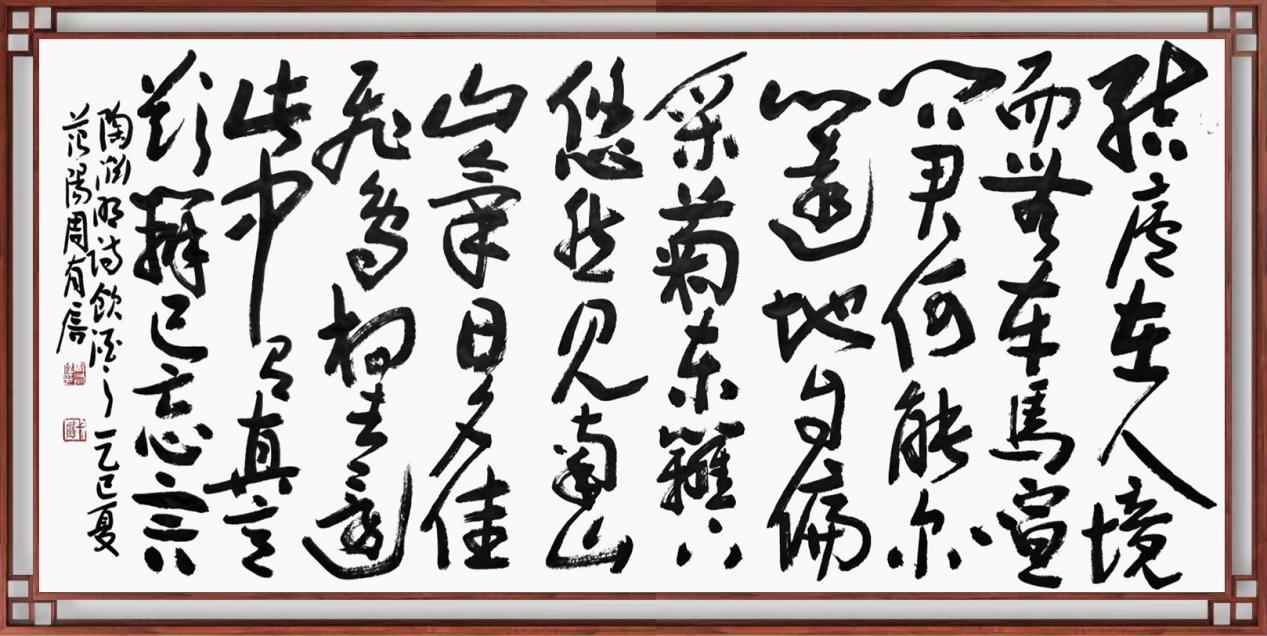 結廬在人境
而無車馬喧
問君何能尔
心遠地自偏
采菊東籬下
悠然見南山
山氣日夕佳
飛鳥相与還
此中有真意
欲辯已忘言
陶渊明詩飲酒之一乙巳夏
范陽周有